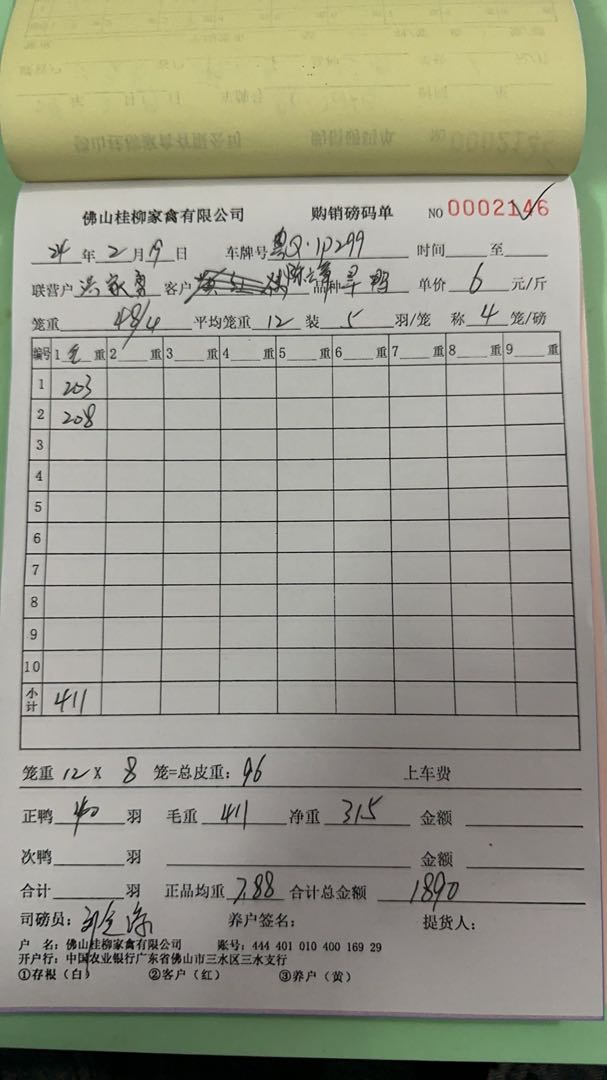 佛山桂柳家禽有限公司 购销磅码单 NO 0002146
24 年 2 月 19 日 车牌号 粤Q·1D299 时间 至
联营户 客户 品种 旱鸭 单价 6 元/斤
笼重 48/4 平均笼重 12 装 5 羽/笼 称 4 笼/磅
编号 1 毛 重 2 重 3 重 4 重 5 重 6 重 7 重 8 重 9 重
1 203
2 208
3
4
5
6
7
8
9
10
小计 411
笼重 12 X 8 笼=总皮重: 96 上车费
正鸭 40 羽 毛重 411 净重 315 金额
次鸭 羽 金额
合计 羽 正品均重 7.88 合计总金额 1890
司磅员: 养户签名: 提货人:
户 名: 佛山桂柳家禽有限公司 账号: 444 401 010 400 169 29
开户行: 中国农业银行广东省佛山市三水区三水支行
①存根(白) ②客户(红) ③养户(黄)